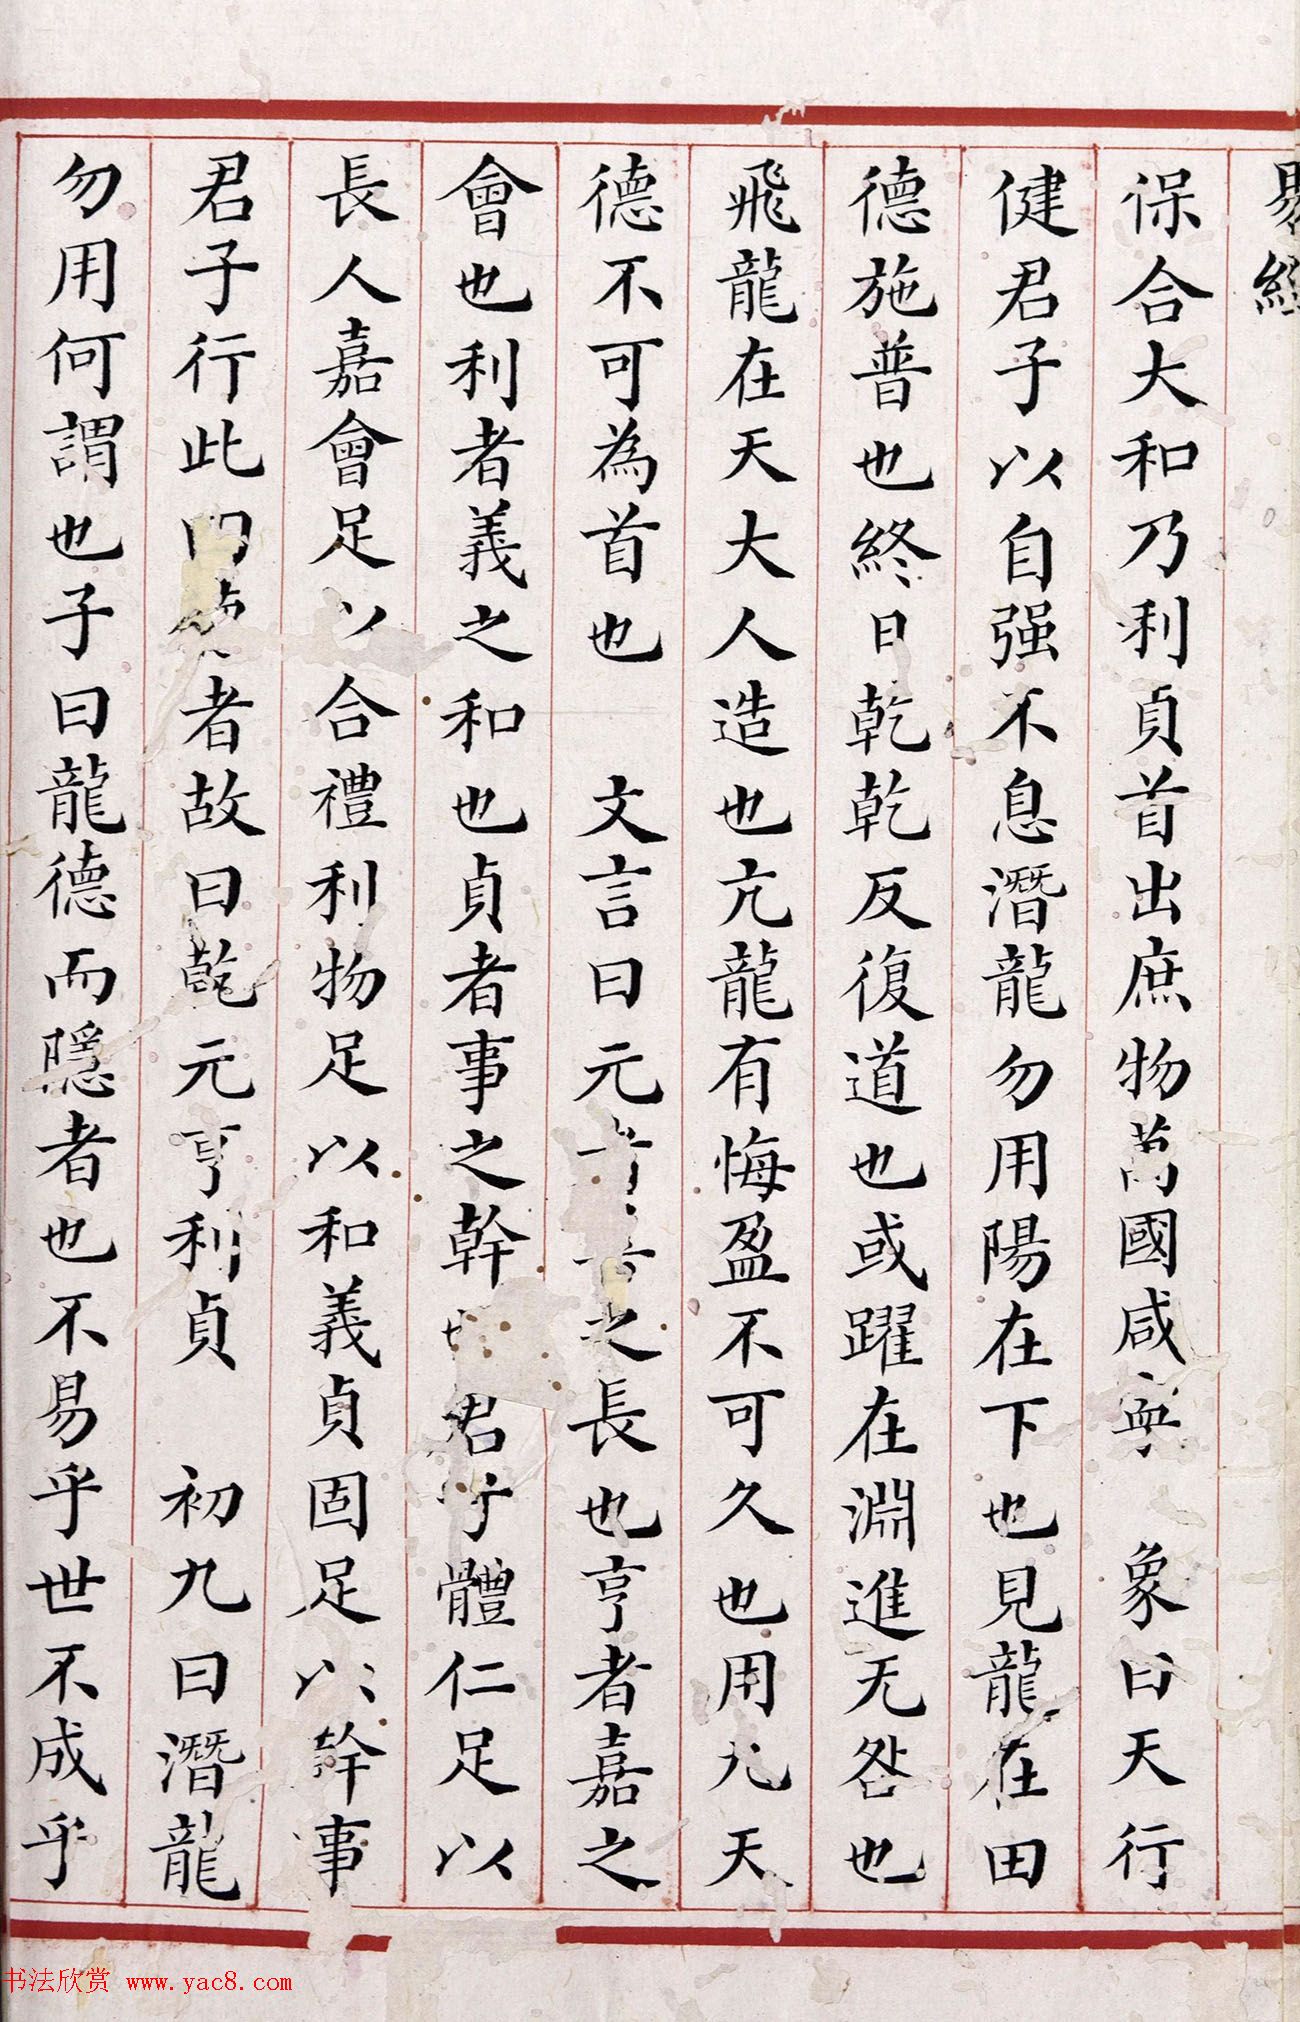 易經
保合大和乃利貞首出庶物萬國咸寍象曰天行
健君子以自强不息潛龍勿用陽在下也見龍在田
德施普也終日乾乾反復道也或躍在淵進无咎也
飛龍在天大人造也亢龍有悔盈不可久也用九天
德不可為首也 文言曰元之長也亨者嘉之
會也利者義之和也貞者事之幹也君子體仁足以
長人嘉會足以合禮利物足以和義貞固足以幹事
君子行此四德者故曰乾元亨利貞 初九曰潛龍
勿用何謂也子曰龍德而隱者也不易乎世不成乎
书法欣赏 www.yac8.com